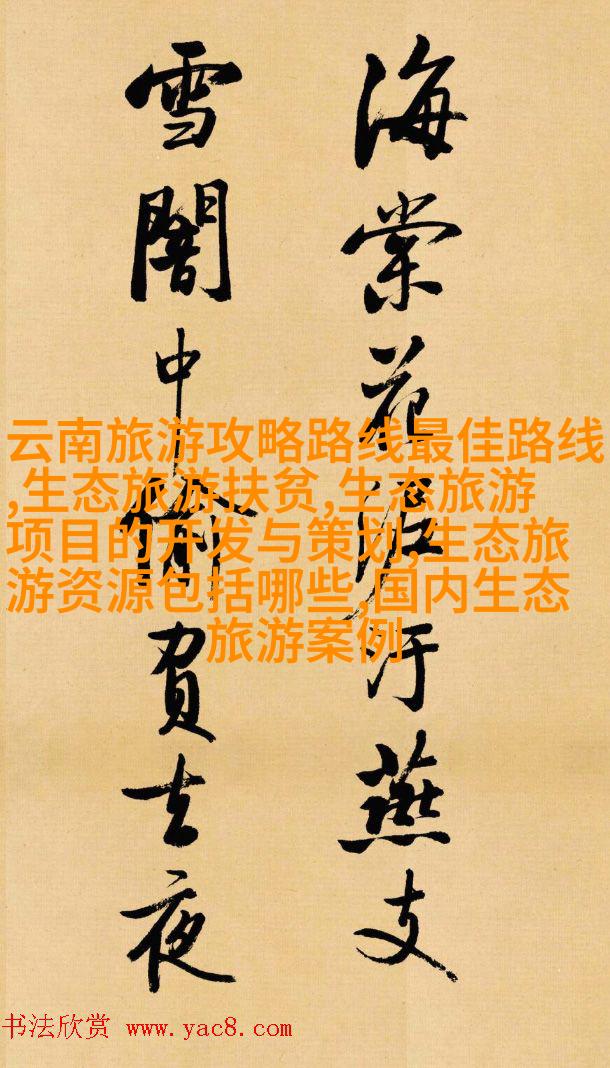 海棠花泥汙燕支
雪闇中偷負去夜
云南旅游攻略路线最佳路线
,生态旅游扶贫,生态旅游
项目的开发与策划,生态旅
游资源包括哪些,国内生态
旅游案例
书法欣赏 www.yac8.com